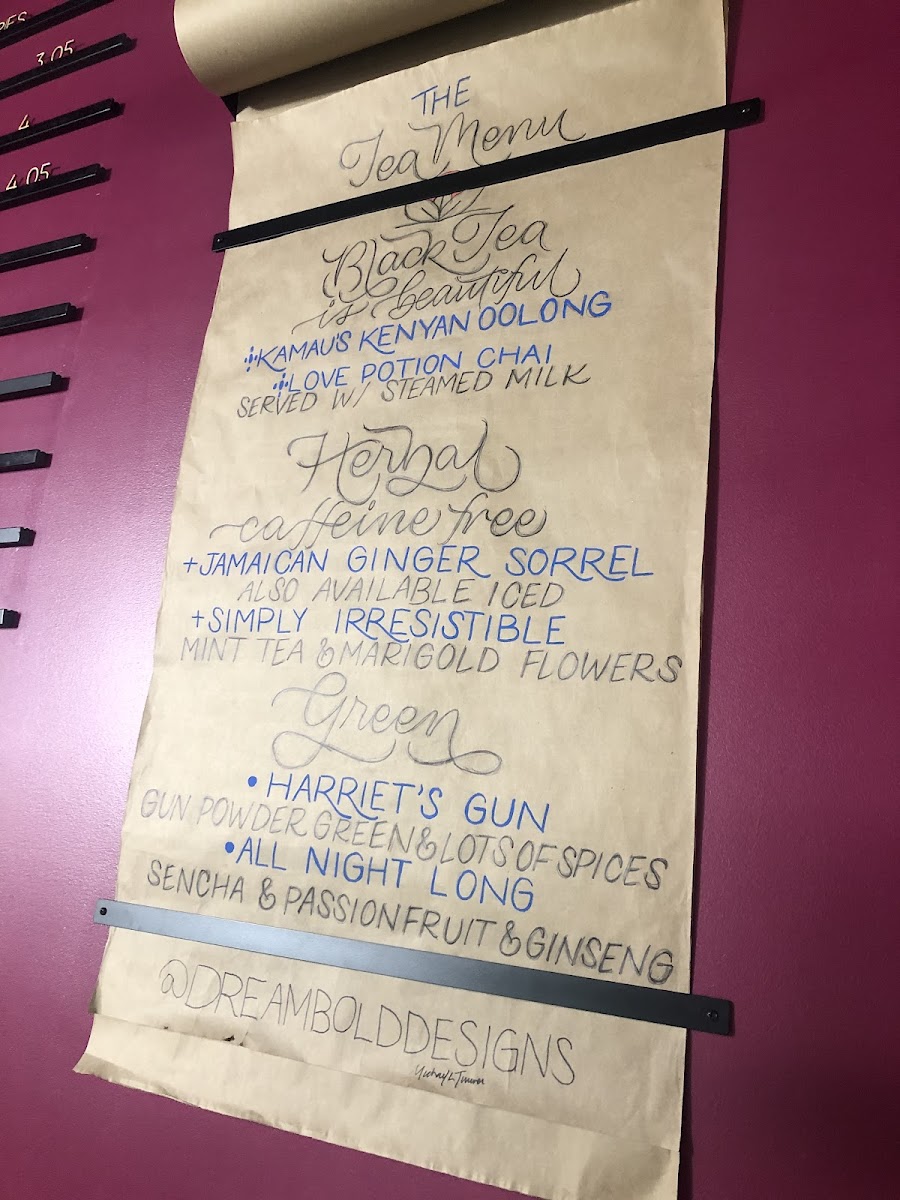 3.05
4
4.05
THE
Tea Menu
Black Tea
is beautiful
KAMAU'S KENYAN OOLONG
LOVE POTION CHAI
SERVED W/ STEAMED MILK
Herbal
caffeine free
+JAMAICAN GINGER SORREL
ALSO AVAILABLE ICED
+SIMPLY IRRESISTIBLE
MINT TEA & MARIGOLD FLOWERS
Green
• HARRIET'S GUN
GUN POWDER GREEN & LOTS OF SPICES
• ALL NIGHT LONG
SENCHA & PASSIONFRUIT & GINSENG
@DREAMBOLDDESIGNS